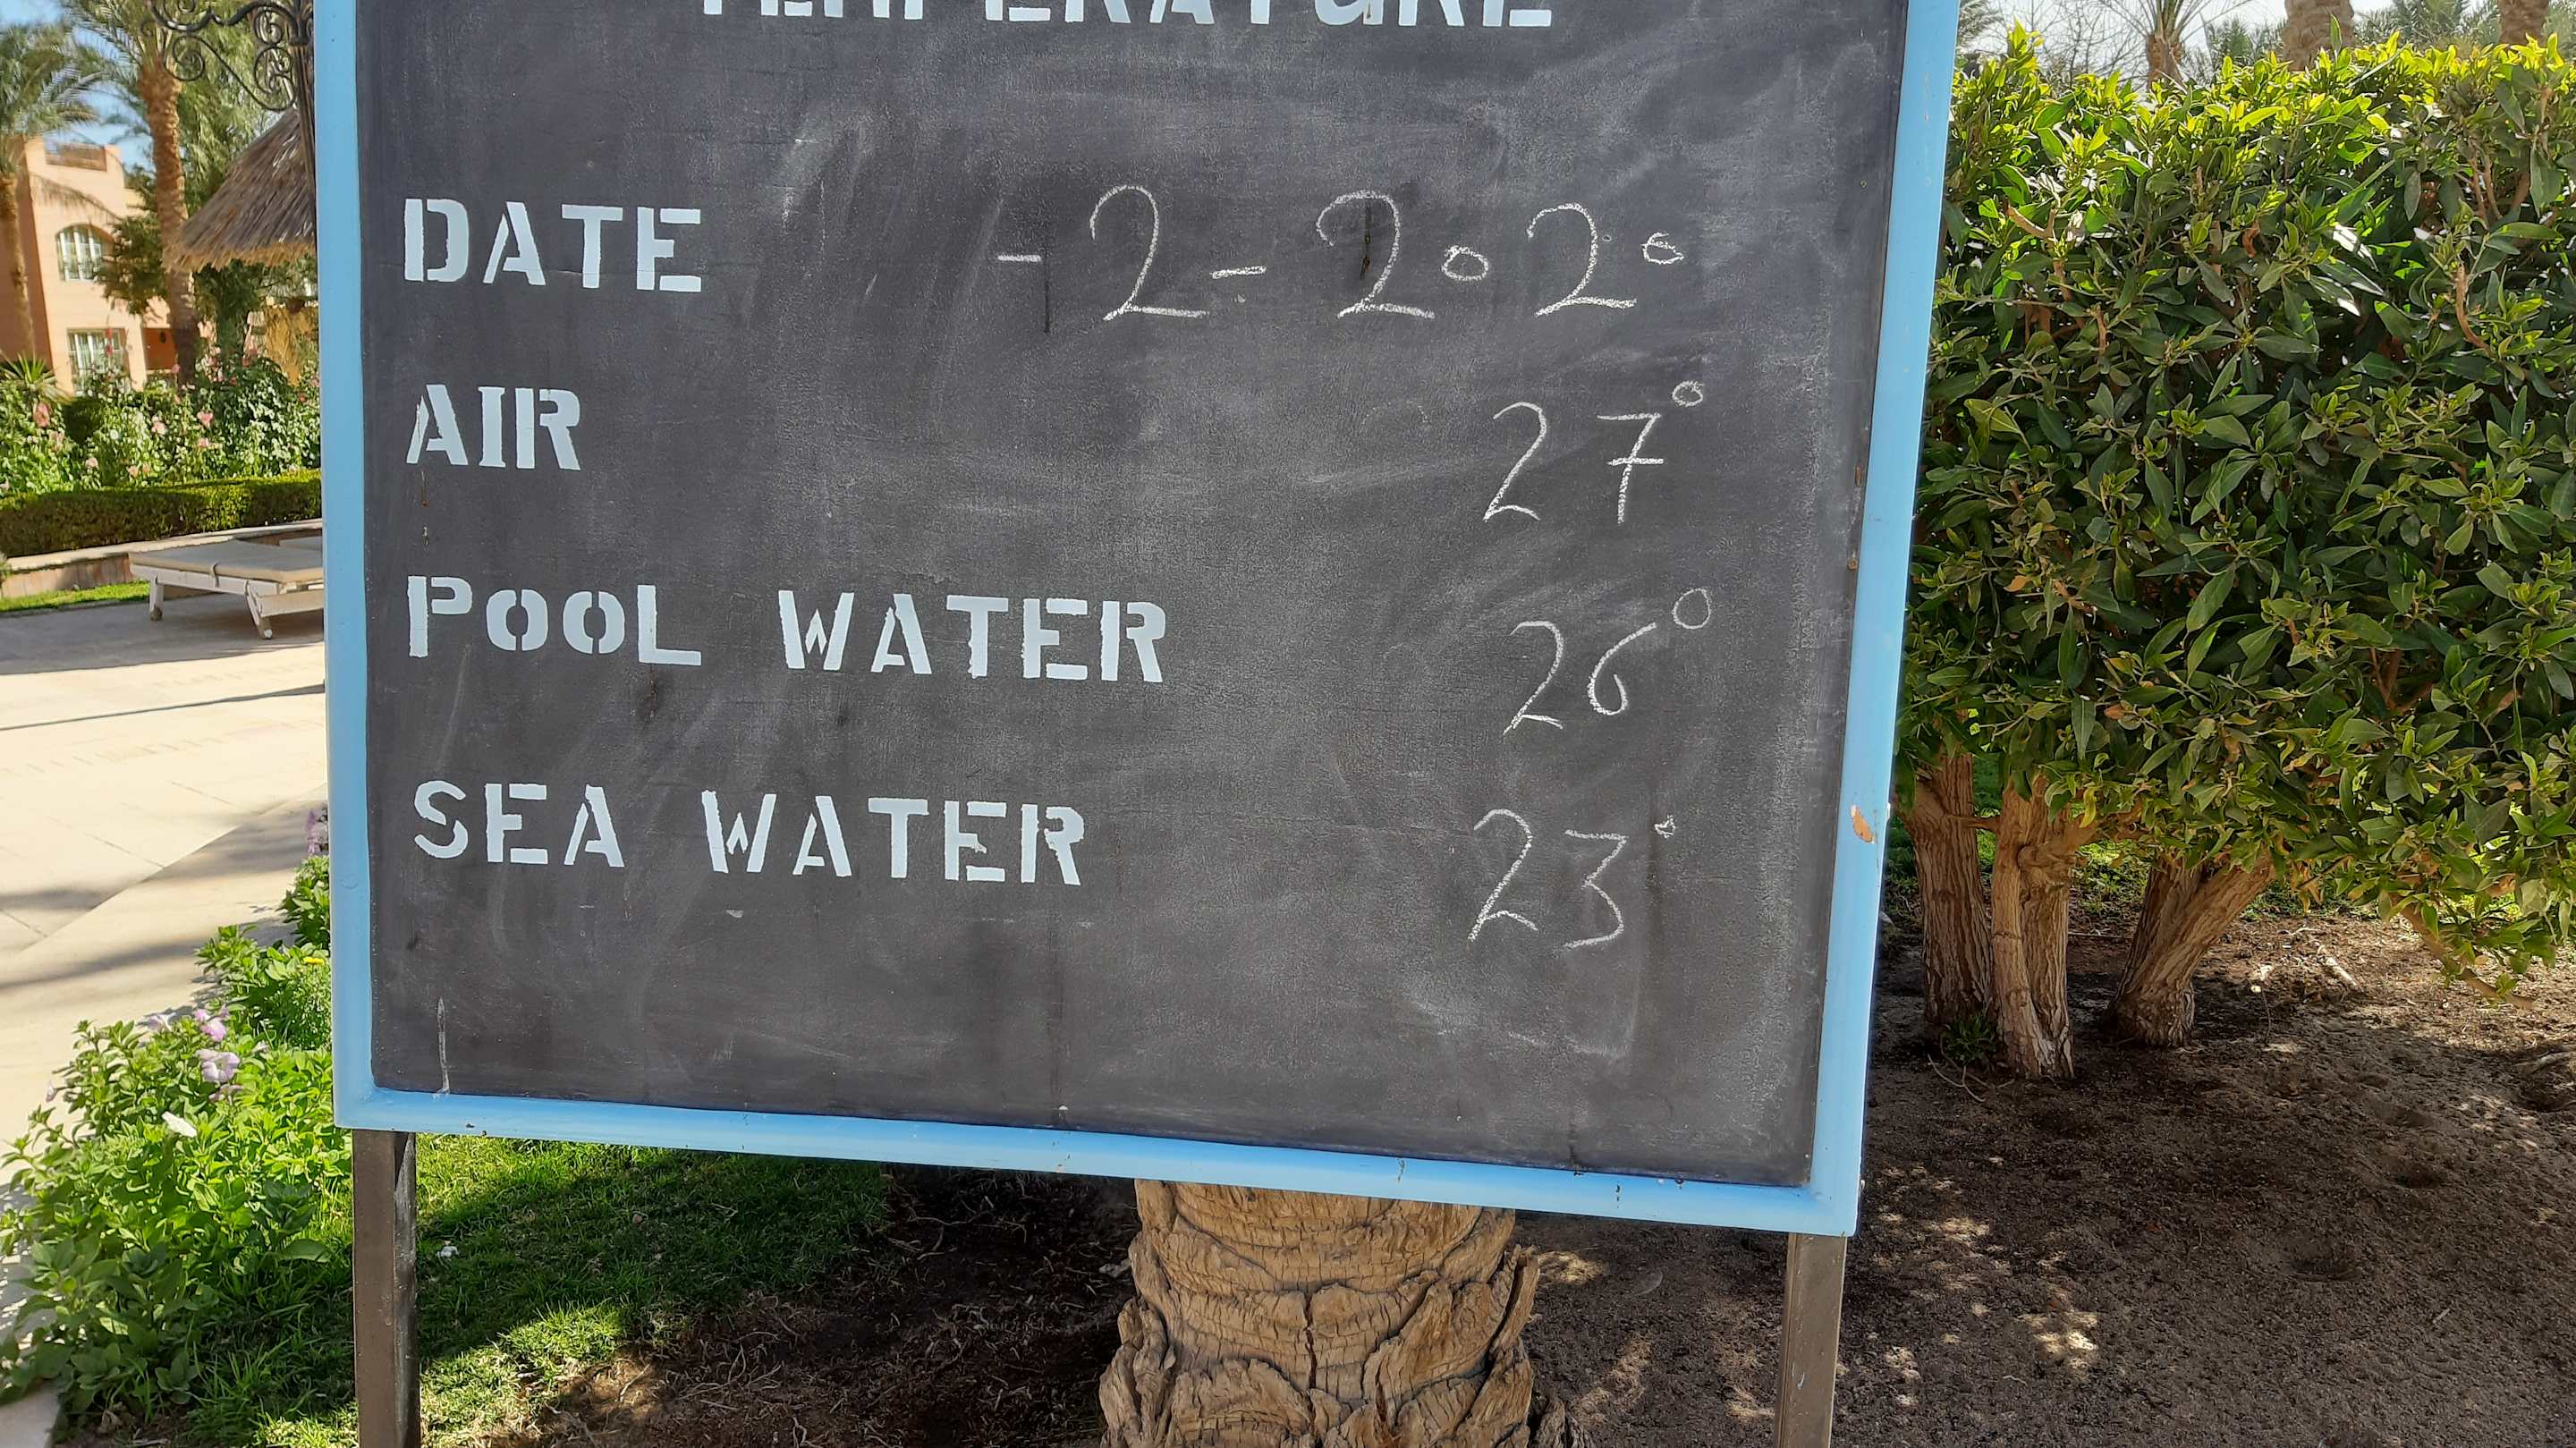 TEMPERATURE
DATE - 2 - 2020
AIR 27°
POOL WATER 26°
SEA WATER 23°